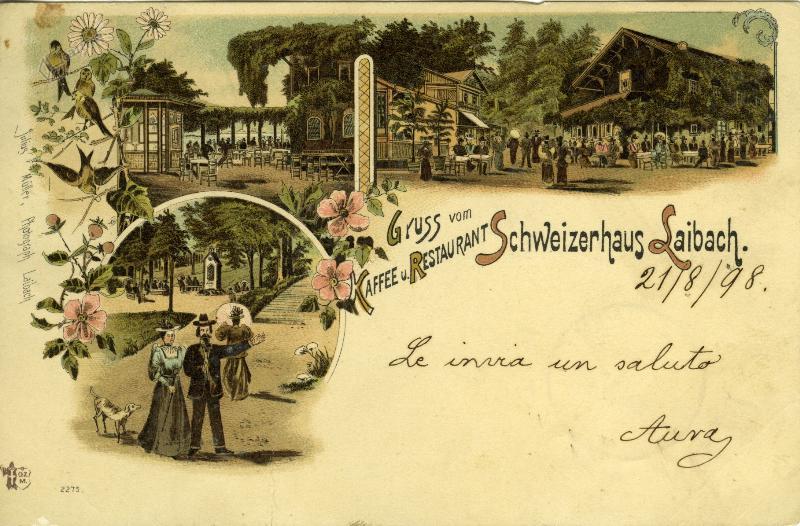 Gruss vom
Kaffee u. Restaurant Schweizerhaus Laibach.
21/8/98.
Le invia un saluto
Aura
Julius Müller, Photograph, Laibach
2275.